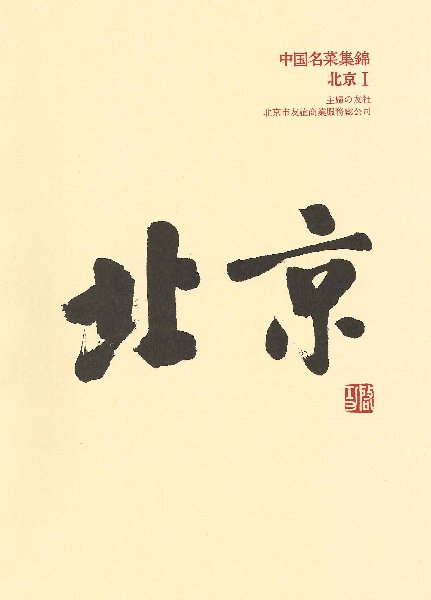 中国名菜集錦
北京Ⅰ
主婦の友社
北京市友誼商業服務總公司
北京